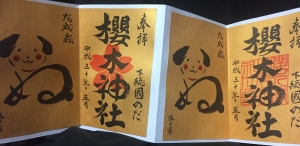 奉拝
下総國のだ
櫻木神社
平成三十年五月
戊戌歳
ぬ
奉拝
下総國のだ
櫻木神社
平成三十年五月
戊戌歳
ぬ